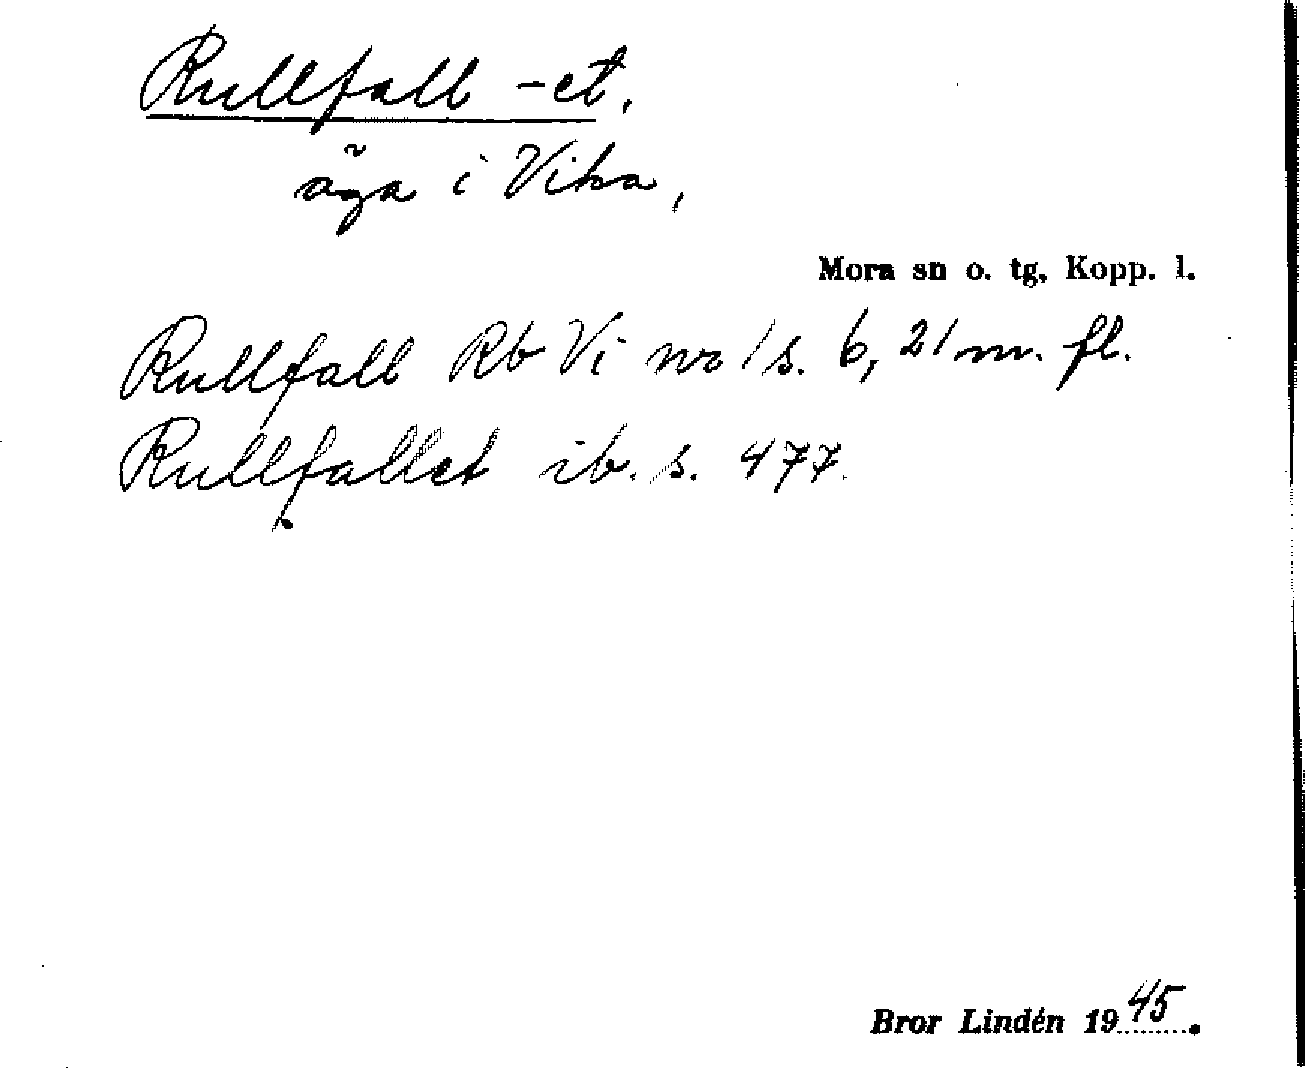 Rullfall -et,
äga i Vika,
Mora sn o. tg, Kopp. l.
Rullfall Rb Vi nr 1 s. 6, 21 m. fl.
Rullfallet ib. s. 477.
Bror Lindén 1945.